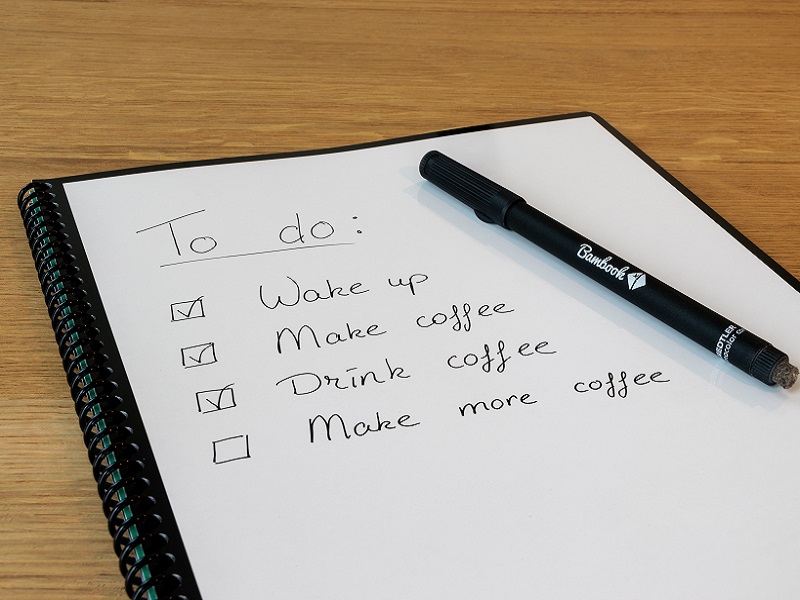 To do:
☑ Wake up
☑ Make coffee
☑ Drink coffee
☐ Make more coffee
Bambook